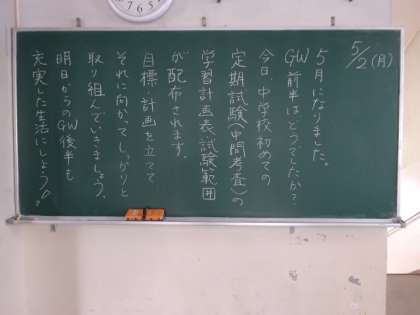 5/2(月)
5月になりました。
GW前半はどうでしたか?
今日、中学校初めての
定期試験(中間考査)の
学習計画表、試験範囲
が配布されます。
目標・計画を立てて
それに向かってしっかりと
取り組んでいきましょう。
明日からのGW後半も
充実した生活にしよう!